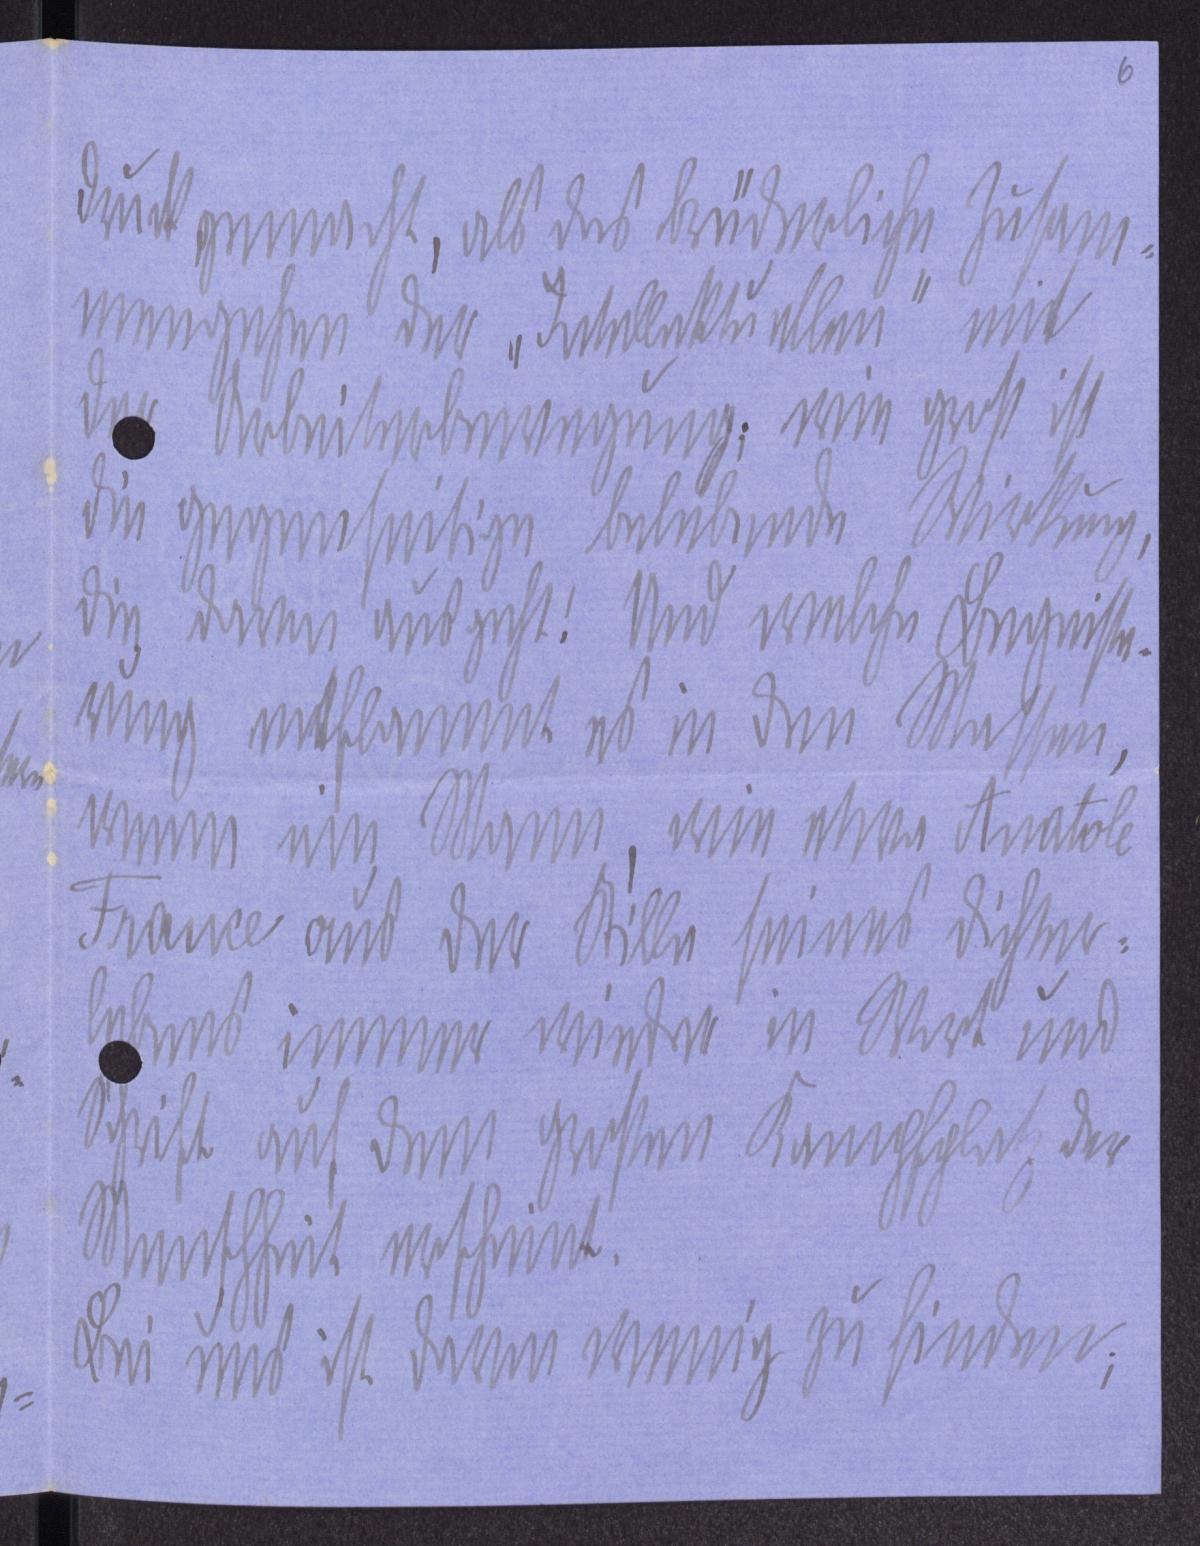 6
druck gemacht, als das brüderliche Zusam=
mengehen der „Intellektuellen" mit
der Arbeiterbewegung; wie groß ist
die gegenseitige belebende Wirkung,
die davon ausgeht! Und welche Begeiste=
rung entflammt es in den Massen,
wenn ein Mann, wie etwa Anatole
France aus der Stille seines Dichter=
lebens immer wieder in Wort und
Schrift auf dem großen Kampfplatz der
Menschheit erscheint.
Bei uns ist davon wenig zu finden;